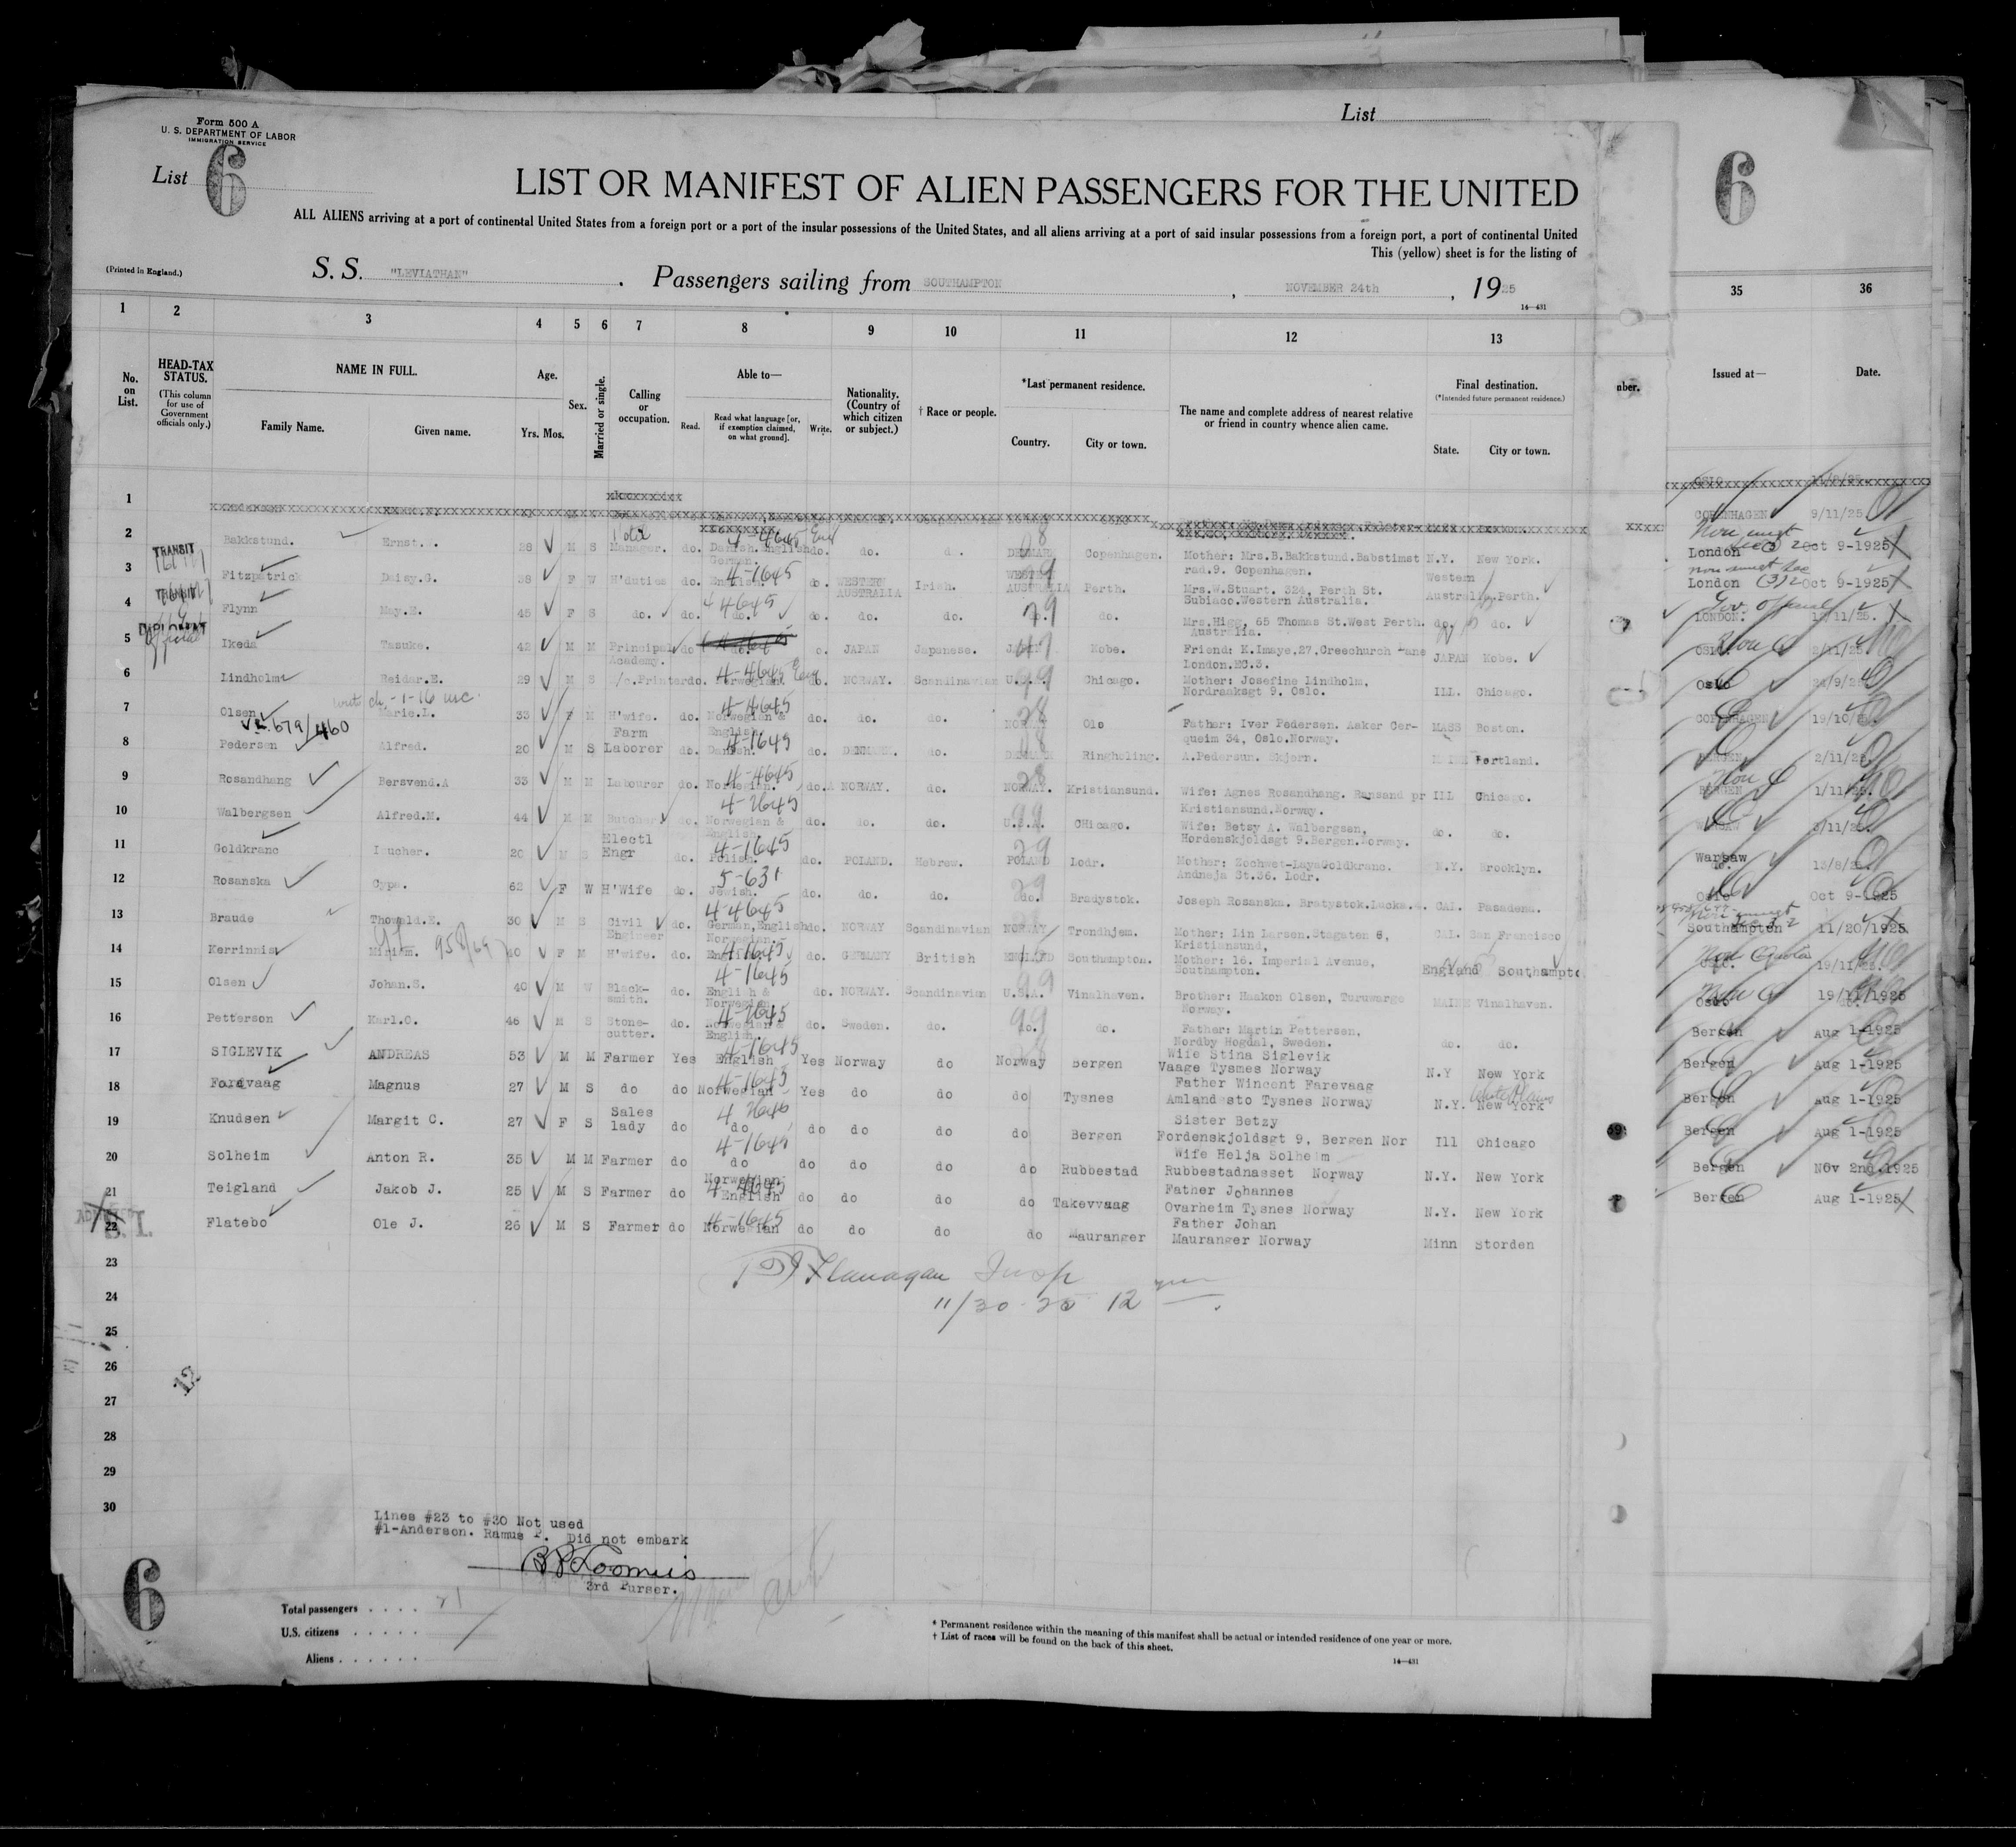 List
Form 500 A
U. S. DEPARTMENT OF LABOR
IMMIGRATION SERVICE
List 6
6
LIST OR MANIFEST OF ALIEN PASSENGERS FOR THE UNITED
ALL ALIENS arriving at a port of continental United States from a foreign port or a port of the insular possessions of the United States, and all aliens arriving at a port of said insular possessions from a foreign port, a port of continental United
This (yellow) sheet is for the listing of
(Printed in England.)
S. S. "LEVIATHAN" . Passengers sailing from SOUTHAMPTON , NOVEMBER 24th , 1925
14—431
1 2 3 4 5 6 7 8 9 10 11 12 13 35 36
No. on List.
HEAD-TAX STATUS.
(This column for use of Government officials only.)
NAME IN FULL.
Family Name. Given name.
Age.
Yrs. Mos.
Sex.
Married or single.
Calling or occupation.
Able to—
Read. Read what language [or, if exemption claimed, on what ground]. Write.
Nationality. (Country of which citizen or subject.)
† Race or people.
*Last permanent residence.
Country. City or town.
The name and complete address of nearest relative or friend in country whence alien came.
Final destination.
(*Intended future permanent residence.)
State. City or town.
nber.
Issued at— Date.
1
2 Bakkstund. Ernst. 28 M S Manager. do. Danish.English German. do. do. DENMARK Copenhagen. Mother: Mrs.B.Bakkstund.Babstimst rad.9. Copenhagen. N.Y. New York. COPENHAGEN 9/11/25
3 TRANSIT Fitzpatrick Daisy.G. 38 F W H'duties do. English. 4-1645 do. WESTERN AUSTRALIA Irish. WESTERN AUSTRALIA Perth. Mrs.W.Stuart. 324, Perth St. Subiaco.Western Australia. Western Australia Perth. London Oct 9-1925
4 TRANSIT Flynn May.E. 45 F S do. do. do. do. do. do. do. do. Mrs.Higg, 65 Thomas St.West Perth. Australia. do. do. London Oct 9-1925
5 DIPLOMAT Official Ikeda Tasuke. 42 M M Principal Academy. do do. JAPAN Japanese. JAPAN Kobe. Friend: K.Imaye,27,Creechurch Lane London.EC.3. JAPAN Kobe. LONDON. Gov. official
6 Lindholm Reidar.E. 29 M S Printer do. Norwegian. 4-4645 do. NORWAY. Scandinavian U.S.A. Chicago. Mother: Josefine Lindholm. Nordraaksgt 9. Oslo. ILL. Chicago. OSLO 2/11/25
7 Olsen Marie.L. 33 F M H'wife. do. Norwegian & English. 4-4645 do. do. do. NORWAY Olo Father: Iver Pedersen. Asker Cerqueim 34, Oslo.Norway. MASS Boston. Oslo
579/460
8 Pedersen Alfred. 20 M S Farm Laborer do. Danish. 4-1645 do. DENMARK. do. DENMARK Ringholing. A.Pedersum. Skjern. MAINE Portland. COPENHAGEN 19/10/25.
9 Rosandhang Bersvend.A 33 M M Labourer do. Norwegian. 4-4645 do. NORWAY. do. NORWAY. Kristiansund. Wife: Agnes Rosandhang. Ransand pr Kristiansund.Norway. ILL Chicago. BERGEN 2/11/25.
10 Walbergsen Alfred.M. 44 M M Butcher do. Norwegian & English. 4-2645 do. do. do. U.S.A. CHicago. Wife: Betsy A. Walbergsen, Hordenskjoldsgt 9.Bergen.Norway. do. do. BERGEN 1/11/25.
11 Goldkranc 20 M S Electl Engr do. Polish. 4-1645 do. POLAND. Hebrew. POLAND Lodr. Mother: Zochwet-LayaGoldkranc. Andneja St.36. Lodr. N.Y. Brooklyn. WARSAW
12 Rosanska Cypa. 62 F W H'Wife do. Jewish. 5-631 do. do. do. do. Bradystok. Joseph Rosanska. Bratystok. CAL. Pasadena. Warsaw 13/8/25
13 Braude Thowald.E. 30 M S Civil Engineer do. German,English Norwegian. 4-4645 do. NORWAY Scandinavian NORWAY Trondhjem. Mother: Lin Larsen.Stagaten 6, Kristiansund, CAL. San Francisco Oslo Oct 9-1925
14 Kerrinnis Miriam. 958/69 40 F M H'wife. do. English. 4-1645 do. GERMANY British ENGLAND Southampton. Mother: 16. Imperial Avenue, Southampton. England Southampto Southampton 11/20/1925
15 Olsen Johan.S. 40 M W Blacksmith. do. English & Norwegian 4-1645 do. NORWAY. Scandinavian U.S.A. Vinalhaven. Brother: Haakon Olsen, Norway. MAINE Vinalhaven. 19/11/25.
16 Petterson Karl.O. 46 M S Stone-cutter. do. Norwegian & English. 4-2645 do. Sweden. do. do. do. Father: Martin Pettersen, Nordby Hogdal, Sweden. do. do. Oslo 19/11/1925
17 SIGLEVIK ANDREAS 53 M M Farmer Yes English 4-1645 Yes Norway do Norway bergen Wife Stina Siglevik Vaage Tysmes Norway N.Y New York Bergen Aug 1-1925
18 Farevaag Magnus 27 M S do do Norwegian 4-1645 Yes do do do Tysnes Father Wincent Farevaag Amland sto Tysnes Norway N.Y. New York White Plains Bergen Aug 1-1925
19 Knudsen Margit C. 27 F S Sales lady do do 4 2646 do do do do Bergen Sister Betzy Fordenskjoldsgt 9, Bergen Nor Ill Chicago Bergen Aug 1-1925
20 Solheim Anton R. 35 M M Farmer do do 4-1645 do do do do Rubbestad Wife Helja Solheim Rubbestadnasset Norway N.Y. New York Bergen Aug 1-1925
21 Teigland Jakob J. 25 M S Farmer do Norwegian English 4-4645 do do do do Takevvaag Father Johannes Ovarheim Tysnes Norway N.Y. New York Bergen Nov 2nd,1925
22 Flatebo Ole J. 26 M S Farmer do Norwegian 4-1645 do do do do Mauranger Father Johan Mauranger Norway Minn Storden Bergen Aug 1-1925
23
Flanagan Insp
24
11/30-25 12
25
26
27
28
29
30
12
Lines #23 to #30 Not used
#1-Anderson. Ramus P. Did not embark
B P Loomis
3rd Purser.
6
Total passengers . . . . 21
U.S. citizens . . . . .
Aliens . . . . . .
* Permanent residence within the meaning of this manifest shall be actual or intended residence of one year or more.
† List of races will be found on the back of this sheet.
14—431